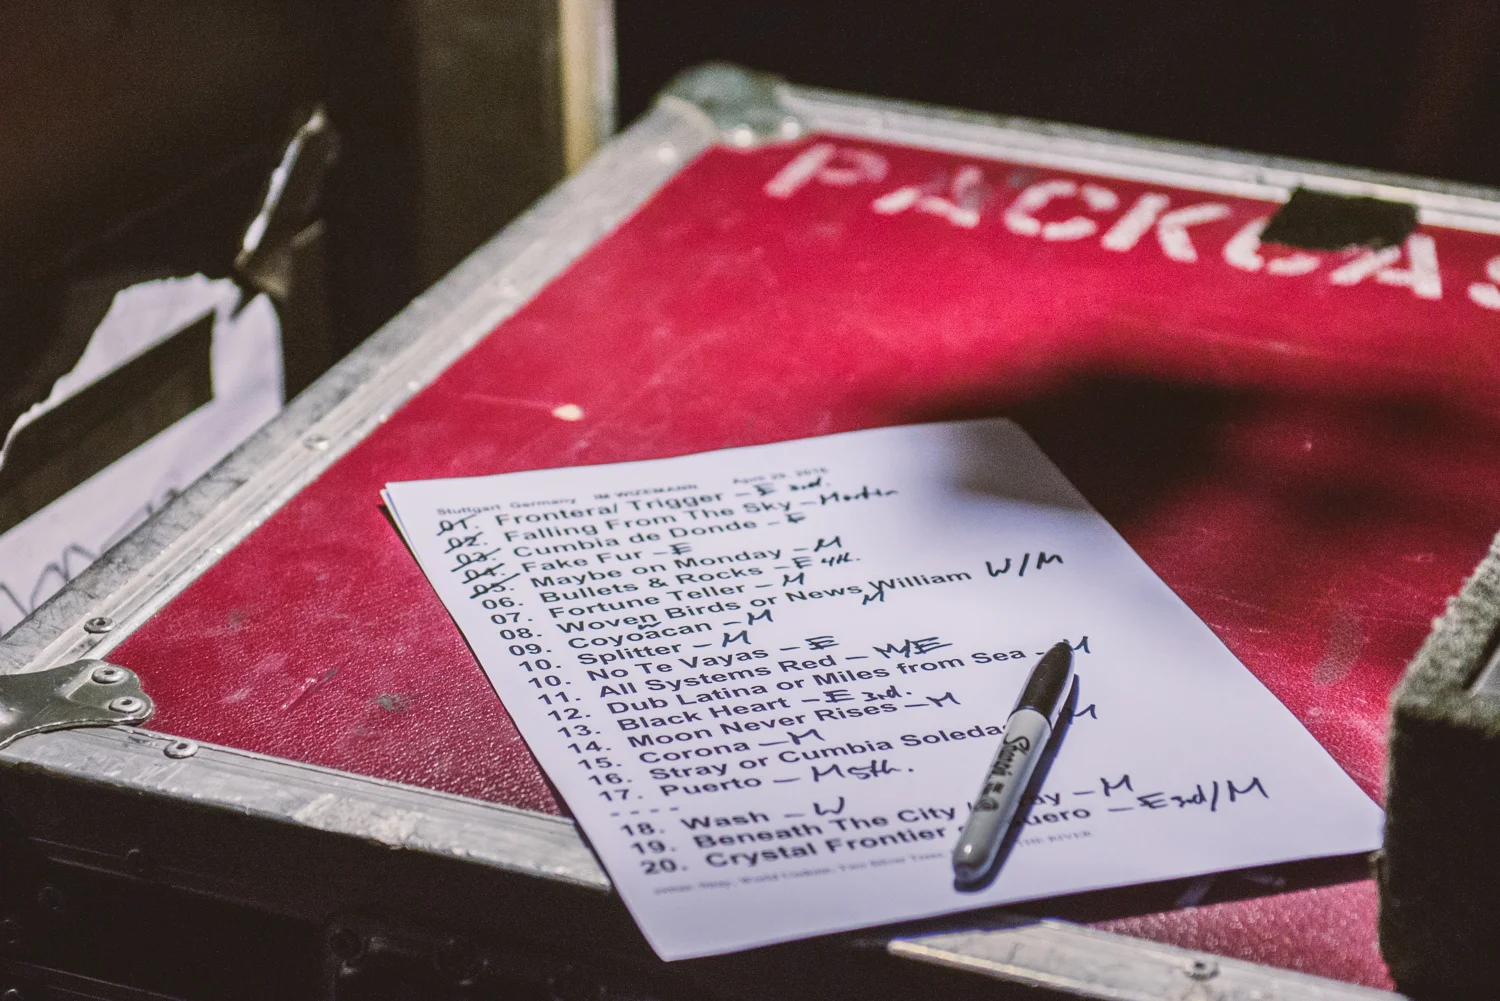 PACKCAS
Stuttgart Germany IM WIZEMANN April 29, 2016
01. Frontera/ Trigger – E 3rd.
02. Falling From The Sky – Martin
03. Cumbia de Donde – E
04. Fake Fur – E
05. Maybe on Monday – M
06. Bullets & Rocks – E 4th.
07. Fortune Teller – M
08. Woven Birds or News William W/M
W M
09. Coyoacan – M
10. Splitter – M
10. No Te Vayas – E
11. All Systems Red – M/E
12. Dub Latina or Miles from Sea – M
13. Black Heart – E 3rd.
14. Moon Never Rises – M
15. Corona – M
16. Stray or Cumbia Soledad M
17. Puerto – M 5th.
- - - -
18. Wash – W
19. Beneath The City – M
20. Crystal Frontier uero – E 3rd/M
THE RIVER
Sharpie